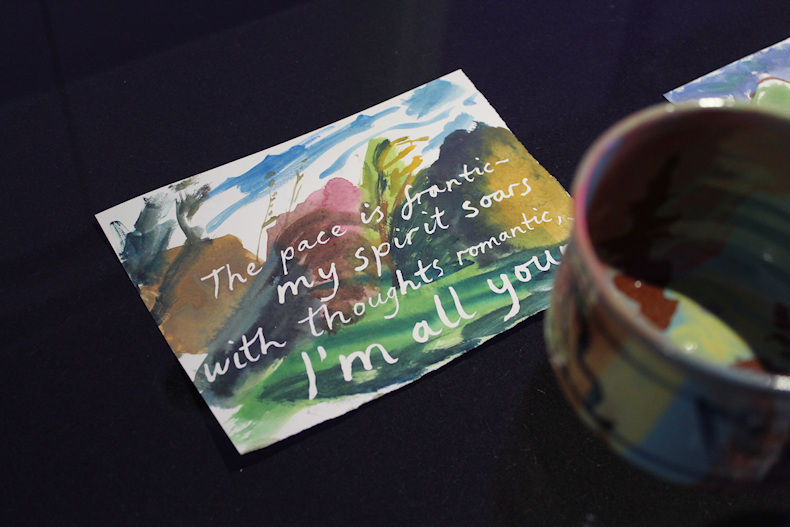 The pace is frantic-
my spirit soars
with thoughts romantic,
I'm all your